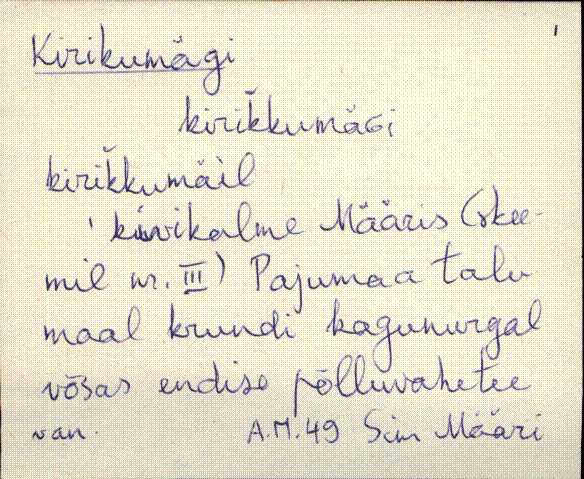 Kirikumägi
kirik̆kumäGi
kirik̆kumäil
' kivikalme Määris (skee-
mil nr. III) Pajumaa talu
maal krundi kagunurgal
võsas endise põlluvahetee
van. A.M. 49 Sim Määri